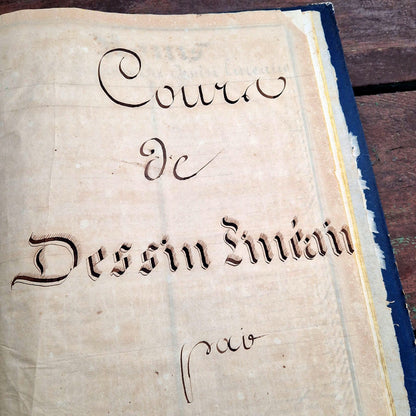 Cours
de
Dessin Linéair
par